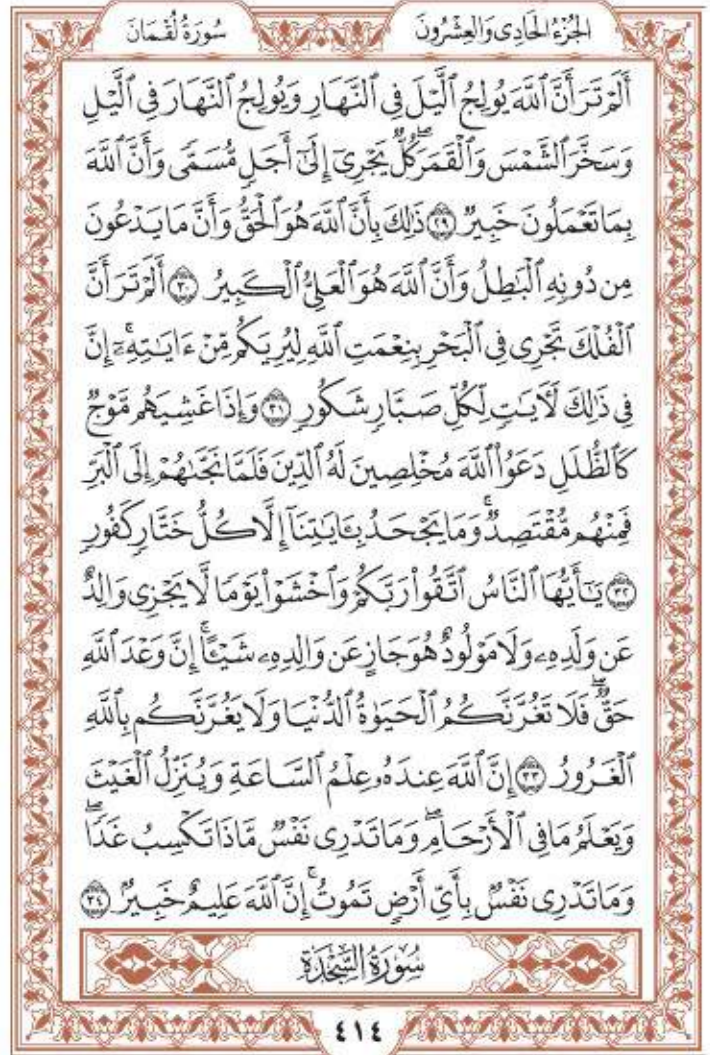 سُورَةُ لُقْمَانَ الجُزْءُ الحَادِى وَالعِشْرُونَ
أَلَمْ تَرَ أَنَّ ٱللَّهَ يُولِجُ ٱلَّيْلَ فِى ٱلنَّهَارِ وَيُولِجُ ٱلنَّهَارَ فِى ٱلَّيْلِ
وَسَخَّرَ ٱلشَّمْسَ وَٱلْقَمَرَۖ كُلٌّ يَجْرِىٓ إِلَىٰٓ أَجَلٍ مُّسَمًّى وَأَنَّ ٱللَّهَ
بِمَا تَعْمَلُونَ خَبِيرٌ ٢٩ ذَٰلِكَ بِأَنَّ ٱللَّهَ هُوَ ٱلْحَقُّ وَأَنَّ مَا يَدْعُونَ
مِن دُونِهِ ٱلْبَٰطِلُ وَأَنَّ ٱللَّهَ هُوَ ٱلْعَلِىُّ ٱلْكَبِيرُ ٣٠ أَلَمْ تَرَ أَنَّ
ٱلْفُلْكَ تَجْرِى فِى ٱلْبَحْرِ بِنِعْمَتِ ٱللَّهِ لِيُرِيَكُم مِّنْ ءَايَٰتِهِۦٓۚ إِنَّ
فِى ذَٰلِكَ لَءَايَٰتٍ لِّكُلِّ صَبَّارٍ شَكُورٍ ٣١ وَإِذَا غَشِيَهُم مَّوْجٌ
كَٱلظُّلَلِ دَعَوُا۟ ٱللَّهَ مُخْلِصِينَ لَهُ ٱلدِّينَ فَلَمَّا نَجَّىٰهُمْ إِلَى ٱلْبَرِّ
فَمِنْهُم مُّقْتَصِدٌۚ وَمَا يَجْحَدُ بِـَٔايَٰتِنَآ إِلَّا كُلُّ خَتَّارٍ كَفُورٍ
٣٢ يَٰٓأَيُّهَا ٱلنَّاسُ ٱتَّقُوا۟ رَبَّكُمْ وَٱخْشَوْا۟ يَوْمًا لَّا يَجْزِى وَالِدٌ
عَن وَلَدِهِۦ وَلَا مَوْلُودٌ هُوَ جَازٍ عَن وَالِدِهِۦ شَيْـًٔاۚ إِنَّ وَعْدَ ٱللَّهِ
حَقٌّۖ فَلَا تَغُرَّنَّكُمُ ٱلْحَيَوٰةُ ٱلدُّنْيَا وَلَا يَغُرَّنَّكُم بِٱللَّهِ
ٱلْغَرُورُ ٣٣ إِنَّ ٱللَّهَ عِندَهُۥ عِلْمُ ٱلسَّاعَةِ وَيُنَزِّلُ ٱلْغَيْثَ
وَيَعْلَمُ مَا فِى ٱلْأَرْحَامِۖ وَمَا تَدْرِى نَفْسٌ مَّاذَا تَكْسِبُ غَدًاۖ
وَمَا تَدْرِى نَفْسٌۢ بِأَىِّ أَرْضٍ تَمُوتُۚ إِنَّ ٱللَّهَ عَلِيمٌ خَبِيرٌۢ ٣٤
سُورَةُ السَّجْدَةِ
٤١٤